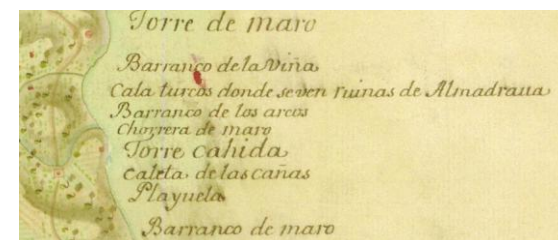 Torre de maro
Barranco de la Viña
Cala turcos donde se ven ruinas de Almadraua
Barranco de los arcos
Chorrera de maro
Torre cahida
Caleta de las cañas
Playuela
Barranco de maro